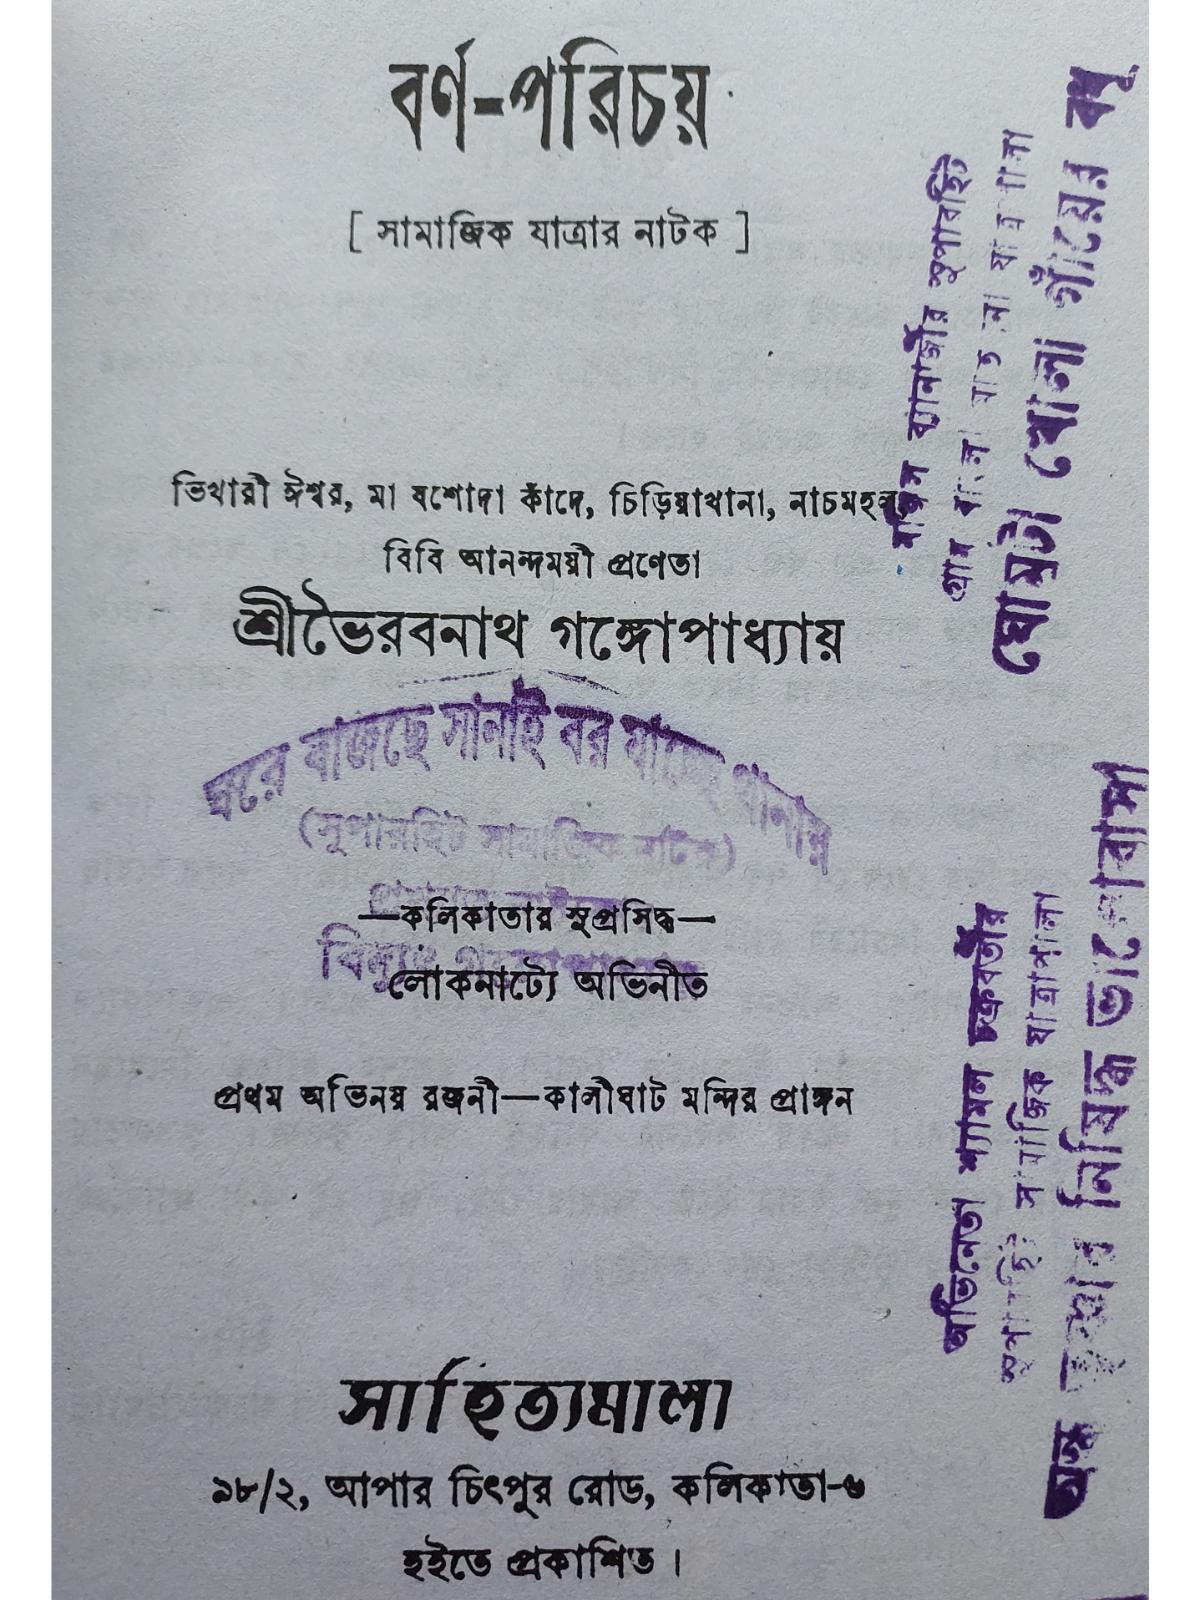 বর্ণ-পরিচয়
[ সামাজিক যাত্রার নাটক ]
ভিখারী ঈশ্বর, মা যশোদা কাঁদে, চিড়িয়াখানা, নাচমহল,
বিবি আনন্দময়ী প্রণেতা
শ্রীভৈরবনাথ গঙ্গোপাধ্যায়
ঘরে বাজছে সানাই বর যাচ্ছে থানায়
(সুপারহিট সামাজিক নাটক)
—কলিকাতার সুপ্রসিদ্ধ—
লোকনাট্যে অভিনীত
প্রথম অভিনয় রজনী—কালীঘাট মন্দির প্রাঙ্গন
সাহিত্যমালা
৯৮/২, আপার চিৎপুর রোড, কলিকাতা-৬
হইতে প্রকাশিত।
ব্যানার্জীর সুপারহিট
ঘোমটা খোলা গাঁয়ের বধূ
অভিনেতা শ্যামল চক্রবর্তীর
সুপারহিট সামাজিক যাত্রাপালা
নিষিদ্ধ ভালোবাসা